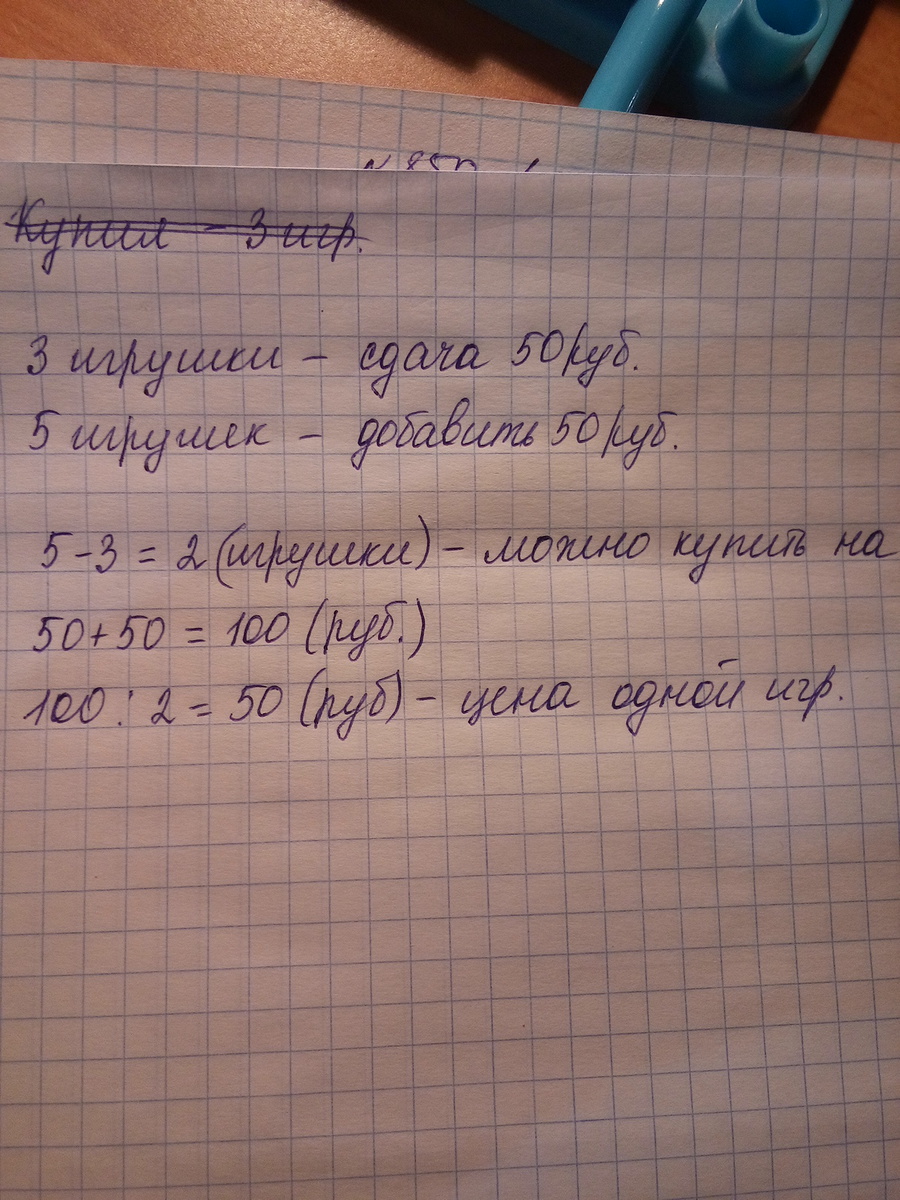 Купил - 3 игр.
3 игрушки - сдача 50 руб.
5 игрушек - добавить 50 руб.
5-3 = 2 (игрушки) - можно купить на
50+50 = 100 (руб.)
100 : 2 = 50 (руб) - цена одной игр.